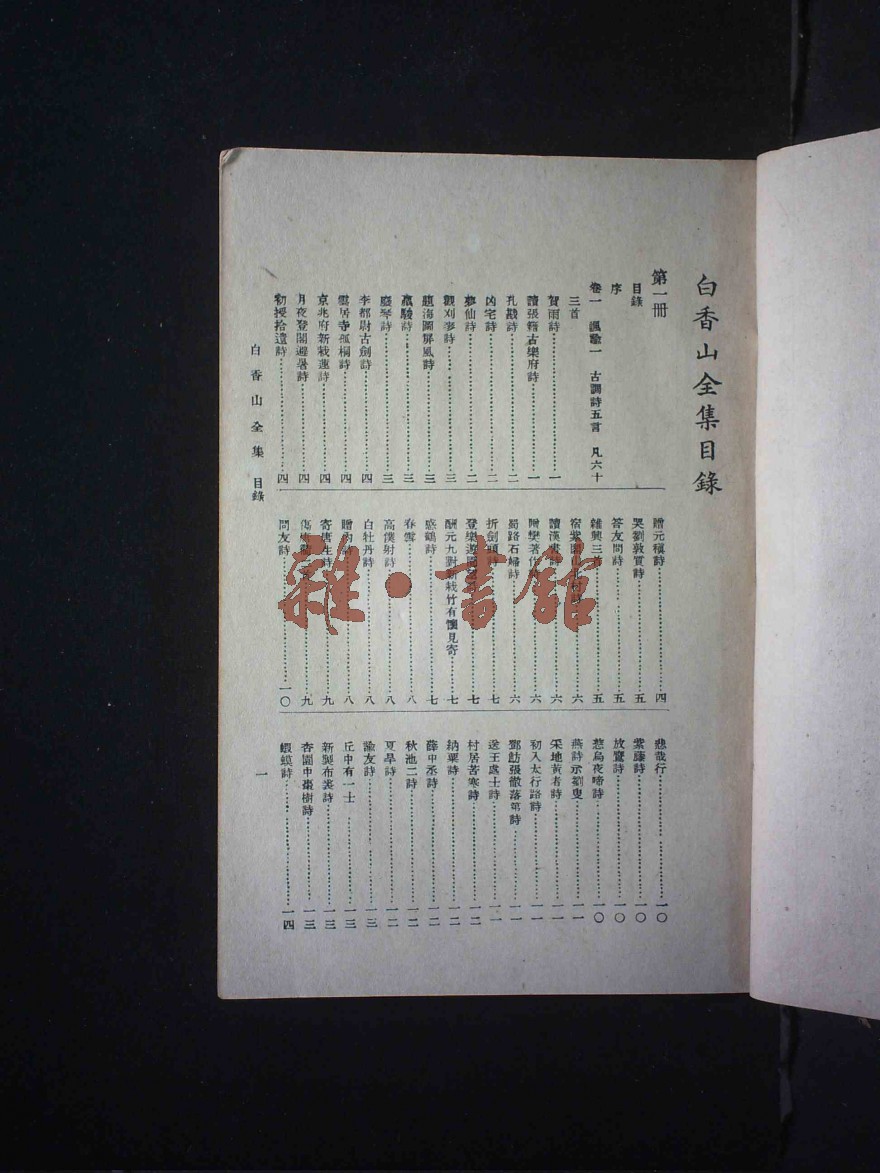 白香山全集目錄
第一冊
目錄
序
卷一 諷諭一 古調詩五言 凡六十
三首
賀雨詩…………一
讀張籍古樂府詩…………一
孔戡詩…………二
凶宅詩…………二
夢仙詩…………二
觀刈麥詩…………三
題海圖屏風詩…………三
羸駿詩…………三
廢琴詩…………三
李都尉古劍詩…………四
雲居寺孤桐詩…………四
京兆府新栽蓮詩…………四
月夜登閣避暑詩…………四
初授拾遺詩…………四
贈元稹詩…………四
哭劉敦質詩…………五
答友問詩…………五
雜興三首…………五
宿紫閣山北村詩…………六
讀漢書詩…………六
贈樊著作…………六
蜀路石婦詩…………六
折劍頭詩…………七
登樂遊園…………七
酬元九對新栽竹有懷見寄…………七
感鶴詩…………七
春雪…………八
高僕射詩…………八
白牡丹詩…………八
贈內詩…………八
寄唐生詩…………九
傷唐衢…………九
問友詩…………一〇
悲哉行…………一〇
紫藤詩…………一〇
放鷹詩…………一〇
慈烏夜啼詩…………一〇
燕詩示劉叟…………一一
采地黃者詩…………一一
初入太行路詩…………一一
鄧魴張徹落第詩…………一一
送王處士詩…………一一
村居苦寒詩…………一二
納粟詩…………一二
薛中丞詩…………一二
秋池二詩…………一二
夏旱詩…………一二
諭友詩…………一三
丘中有一士…………一三
新製布裘詩…………一三
杏園中棗樹詩…………一三
蝦蟆詩…………一四
白香山全集 目錄
一
雜·書館